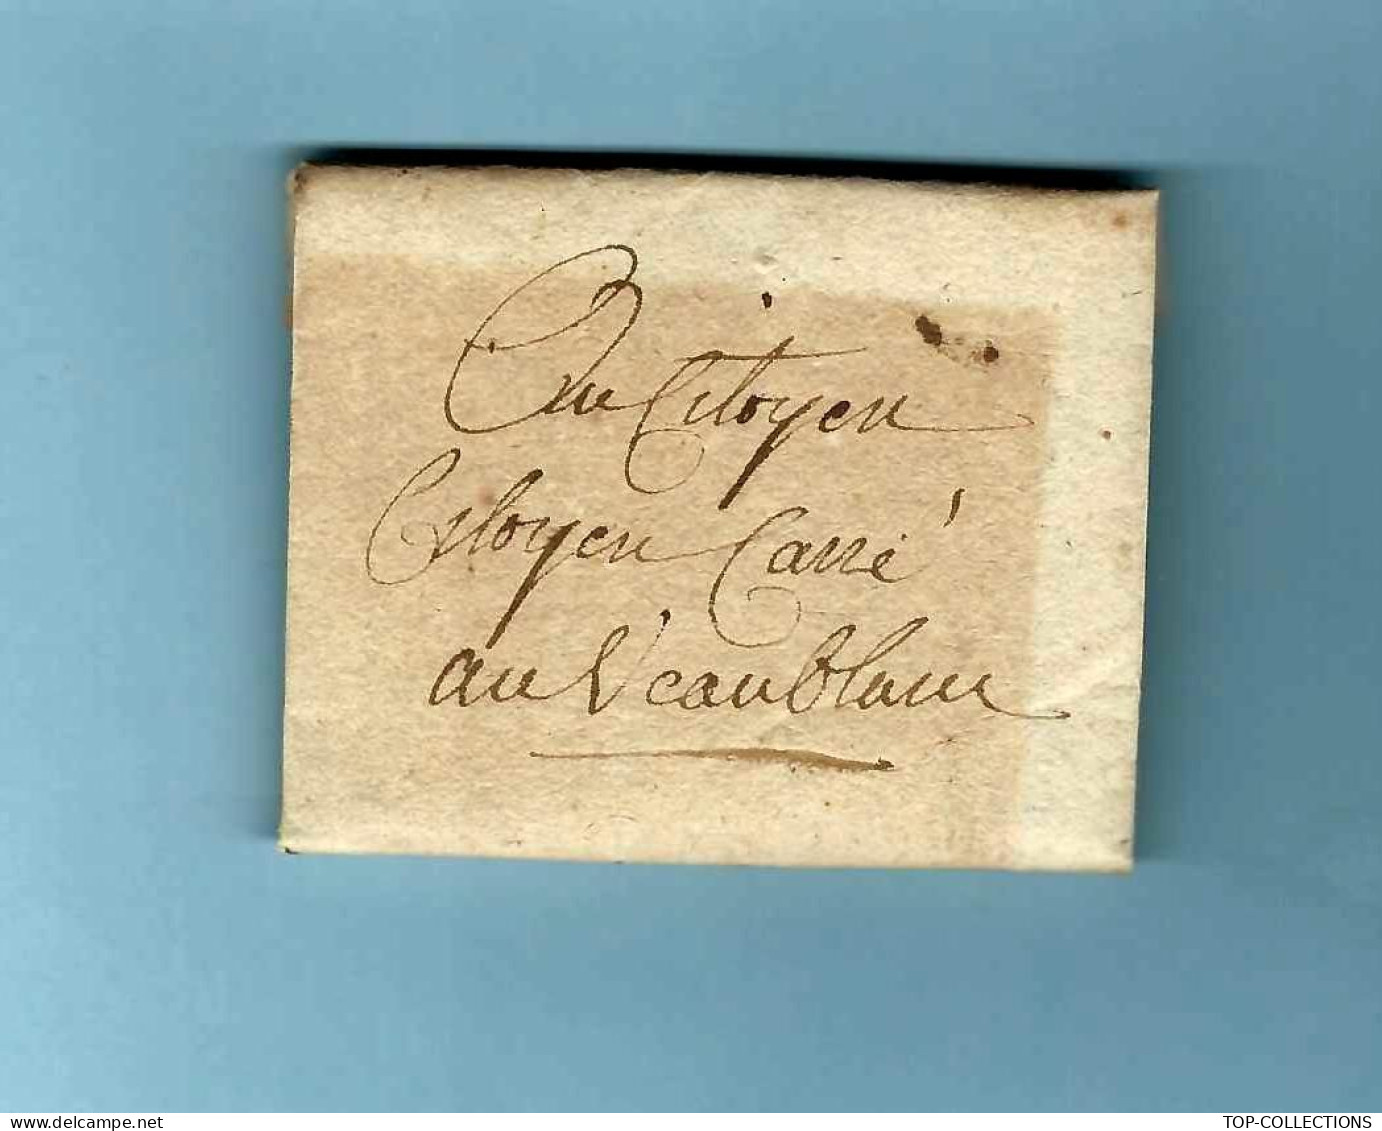 Au Citoyen
Citoyen Carré
au Veaublanc
www.delcampe.net
TOP-COLLECTIONS